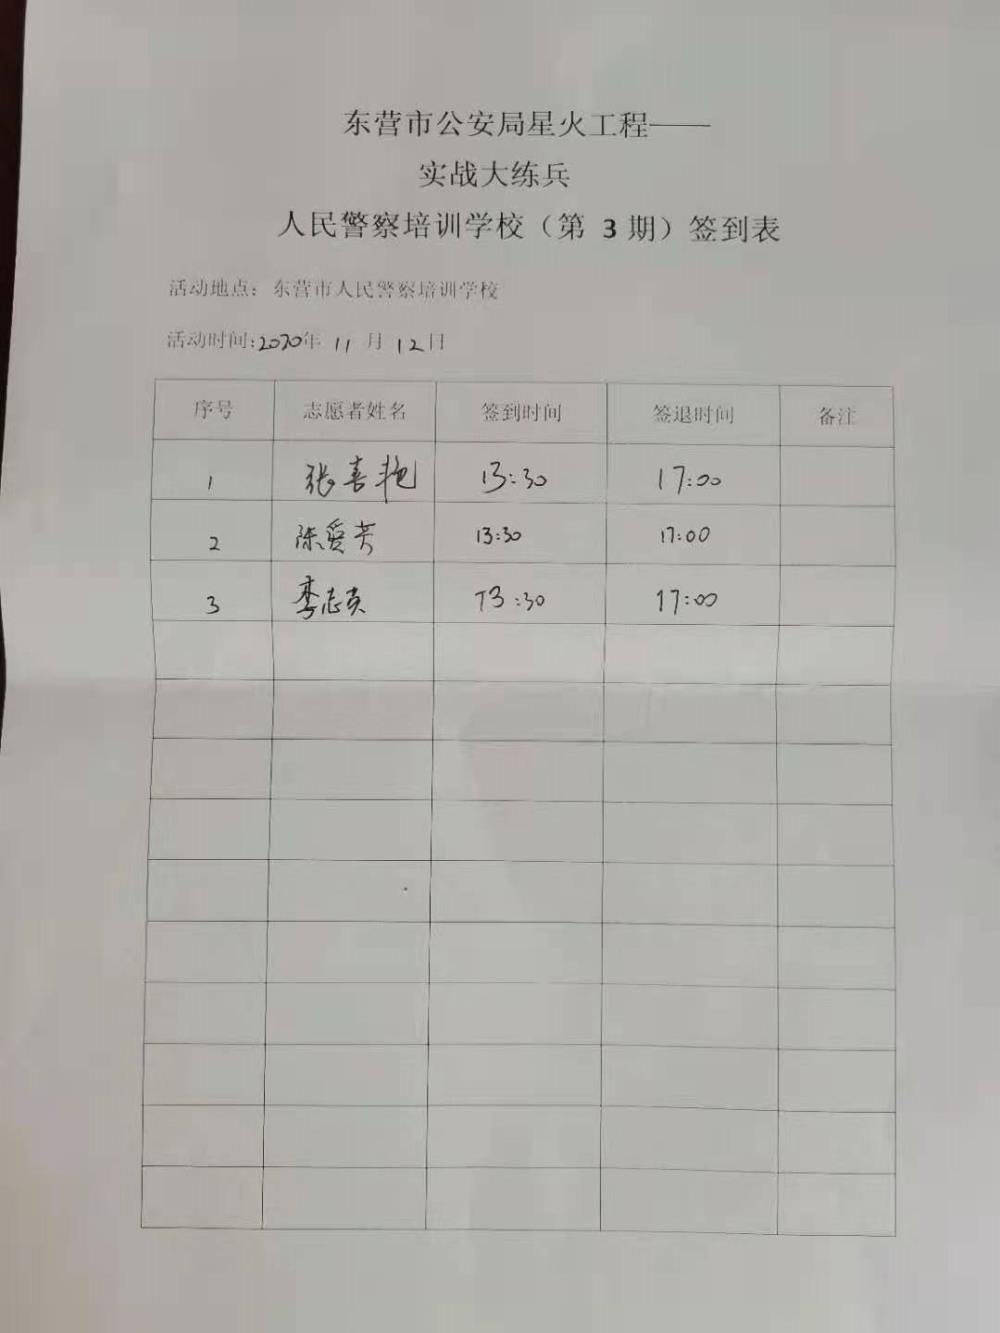 东营市公安局星火工程——
实战大练兵
人民警察培训学校（第 3 期）签到表
活动地点：东营市人民警察培训学校
活动时间:2020年 11 月 12日
序号 志愿者姓名 签到时间 签退时间 备注
1 张喜艳 13:30 17:00
2 陈爱芳 13:30 17:00
3 李志英 13:30 17:00